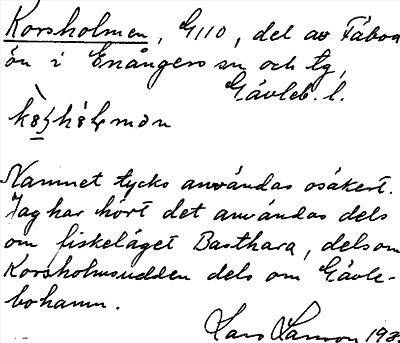 Korsholmen, G110, del av Fåbod
ön i Enångers sn och tg,
Gävleb. l.
Namnet tycks användas osäkert.
Jag har hört det användas dels
om fiskeläget Basthara, dels om
Korsholmsudden dels om Gävle-
bohamn.
Lars